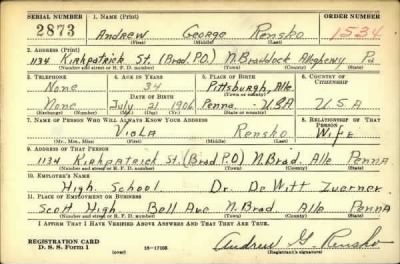 SERIAL NUMBER 1. NAME (Print) ORDER NUMBER
2873 ANDREW George Rensko 1534
(First) (Middle) (Last)
2. ADDRESS (Print)
1134 Kirkpatrick St. (Brad. P.O.) N. Braddock Allegheny Pa
(Number and street or R. F. D. number) (Town) (County) (State)
3. TELEPHONE 4. AGE IN YEARS 5. PLACE OF BIRTH 6. COUNTRY OF CITIZENSHIP
None 34 Pittsburgh, Alle.
DATE OF BIRTH (Town or county)
None July 21 1906 Penna. USA U.S.A.
(Exchange) (Number) (Mo.) (Day) (Yr.) (State or country)
7. NAME OF PERSON WHO WILL ALWAYS KNOW YOUR ADDRESS 8. RELATIONSHIP OF THAT PERSON
Viola Rensko Wife
(Mr., Mrs., Miss) (First) (Middle) (Last)
9. ADDRESS OF THAT PERSON
1134 Kirkpatrick St. (Brad P.O) N. Brad. Alle Penna
(Number and street or R. F. D. number) (Town) (County) (State)
10. EMPLOYER'S NAME
High School Dr. De Witt
11. PLACE OF EMPLOYMENT OR BUSINESS
Scott High Bell Ave N. Brad. Alle Penna
(Number and street or R. F. D. number) (Town) (County) (State)
I AFFIRM THAT I HAVE VERIFIED ABOVE ANSWERS AND THAT THEY ARE TRUE.
REGISTRATION CARD
D. S. S. Form 1 (over) 16-17105 Andrew G. Rensko
(Registrant's signature)